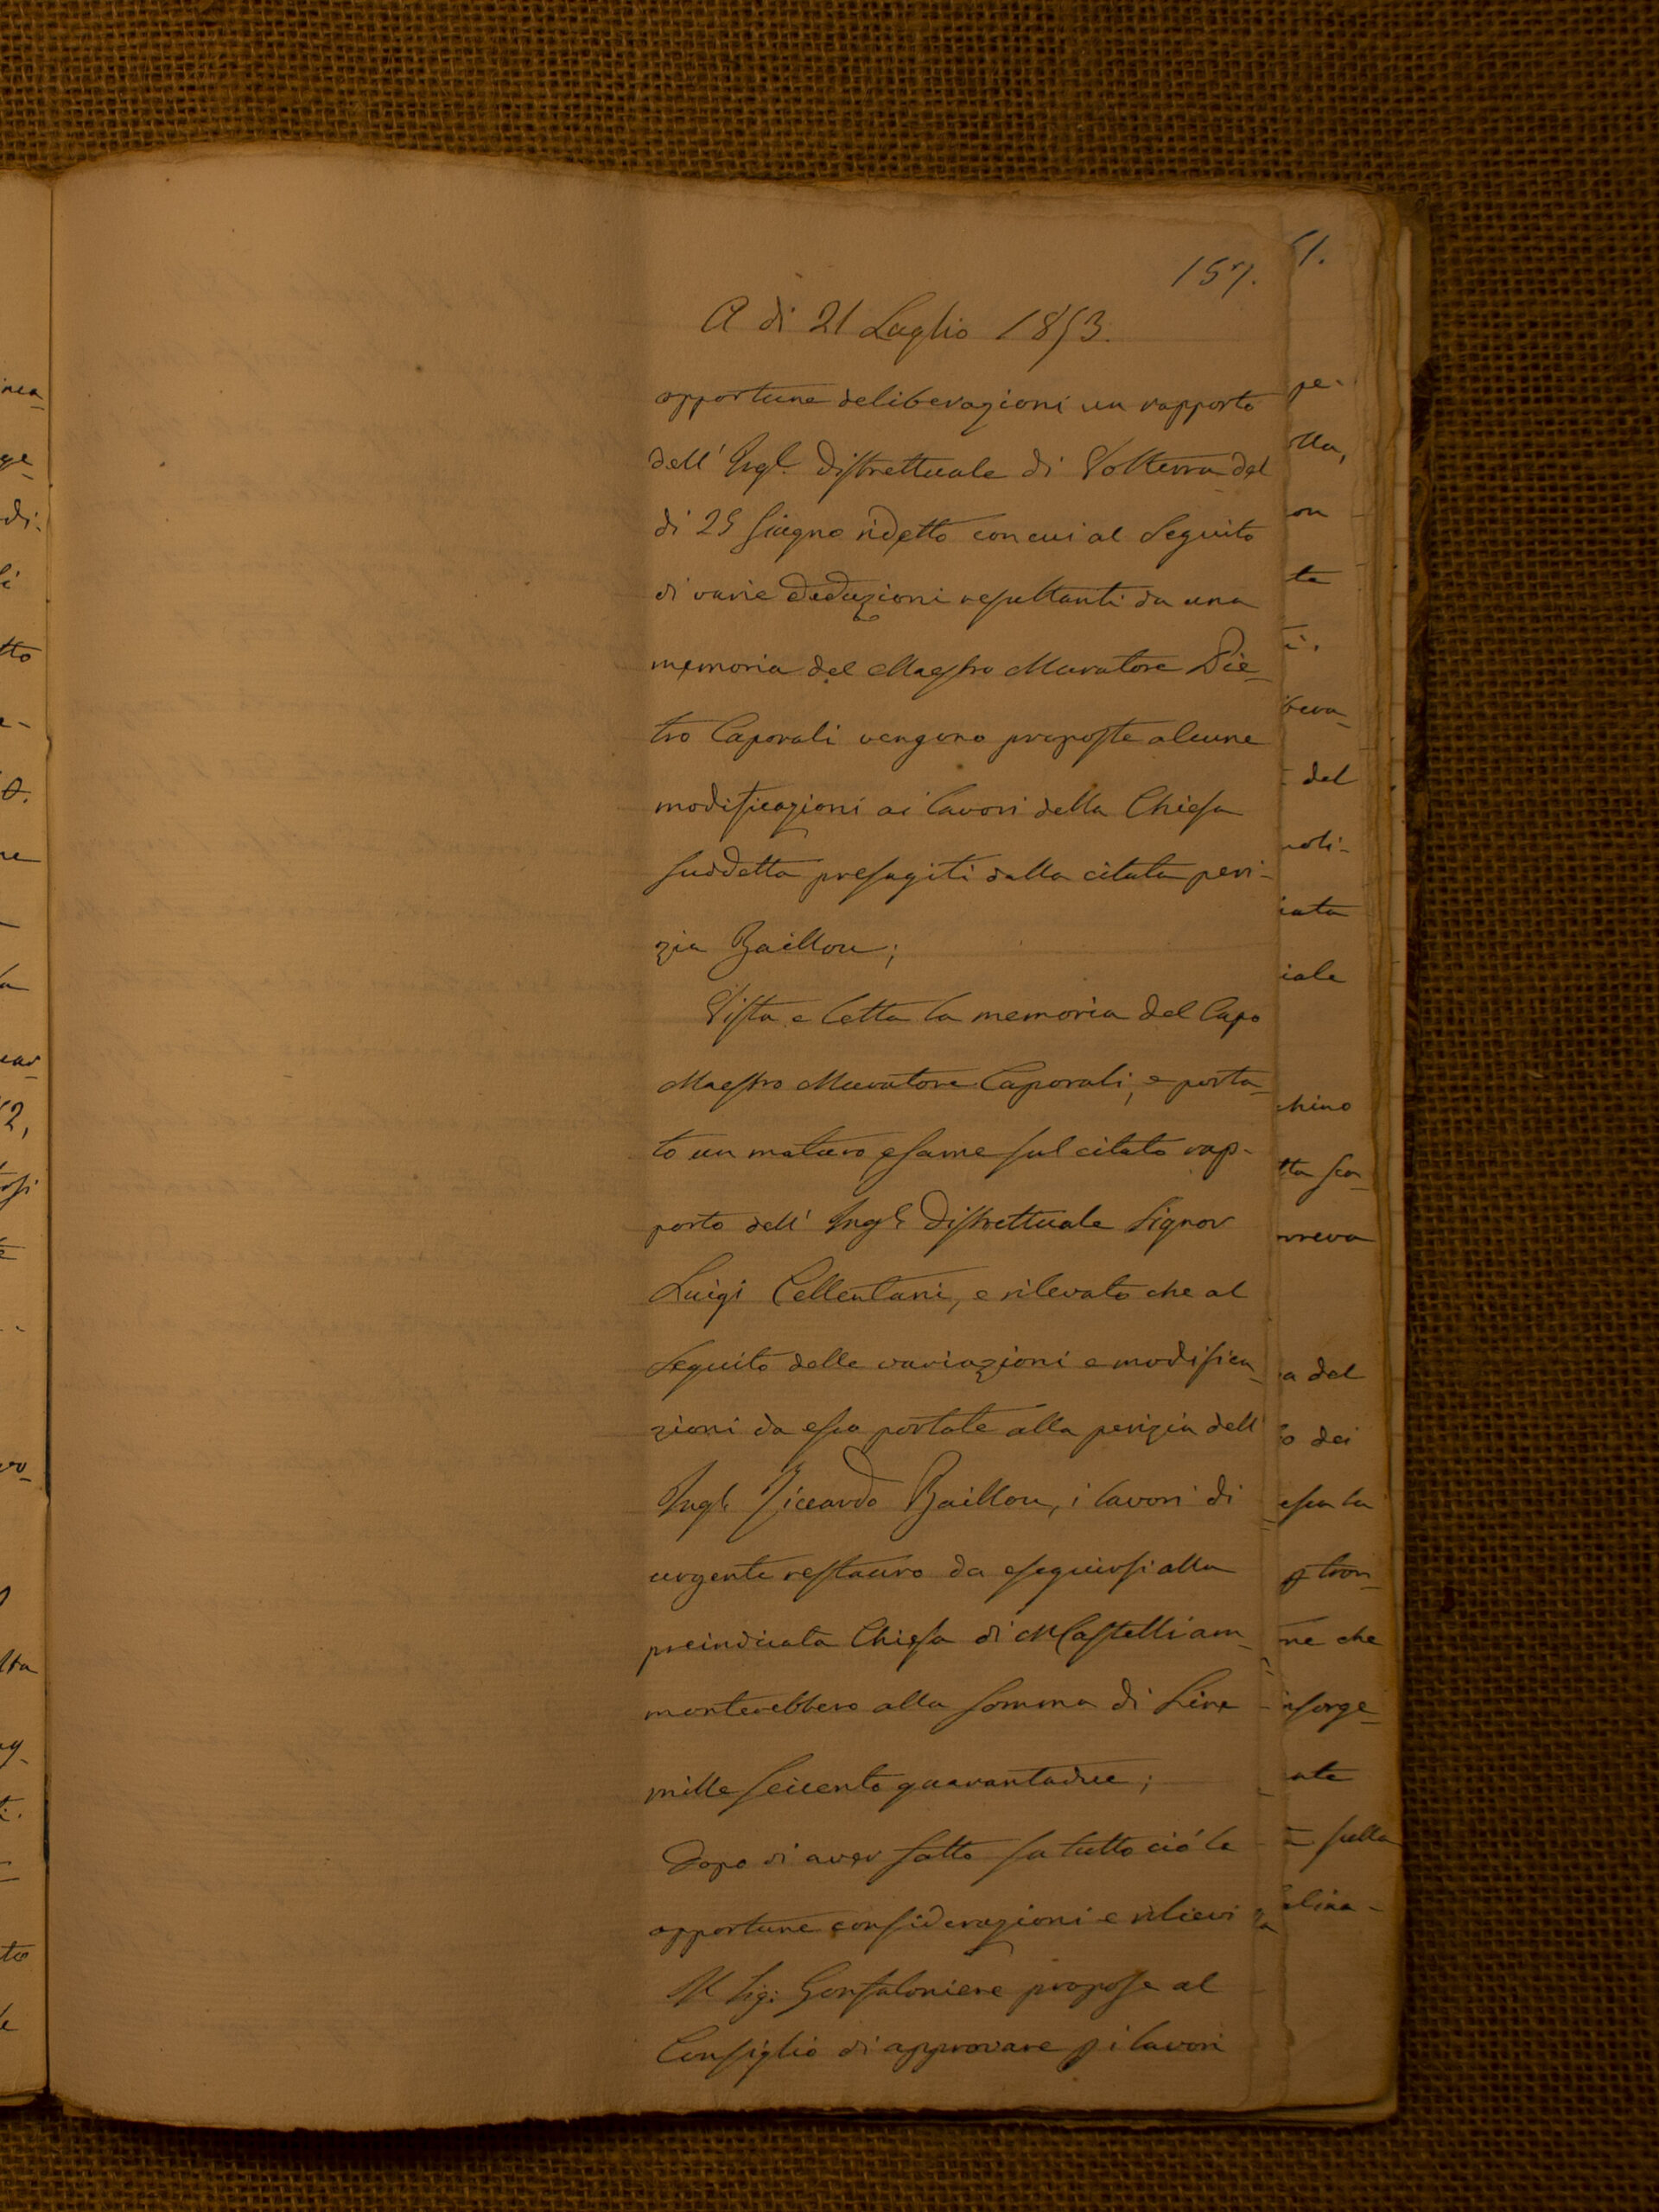 157.
A di 21 Luglio 1853.
opportune deliberazioni un rapporto
dell' Ingle. Distrettuale di Volterra del
di 25 Giugno ridetto con cui al Seguito
di varie deduzioni resultanti da una
memoria del Maestro Muratore Pie-
tro Caporali vengono proposte alcune
modificazioni ai lavori della Chiesa
suddetta presagiti dalla citata peri-
zia Baillou;
Vista e letta la memoria del Capo
Maestro Muratore Caporali, e porta-
to un maturo esame sul citato rap-
porto dell' Ingle Distrettuale Signor
Luigi Cellentani, e rilevato che al
Seguito delle variazioni e modifica-
zioni da esso portate alla perizia dell'
Ingle Riccardo Baillou, i lavori di
urgente restauro da eseguirsi alla
preindicata Chiesa di MCastelli am-
monterebbero alla Somma di Lire
mille Seicento quarantadue;
Dopo di aver fatto su tutto ciò le
opportune considerazioni e rilievi
Il Sig: Gonfaloniere propose al
Consiglio di approvare i lavori